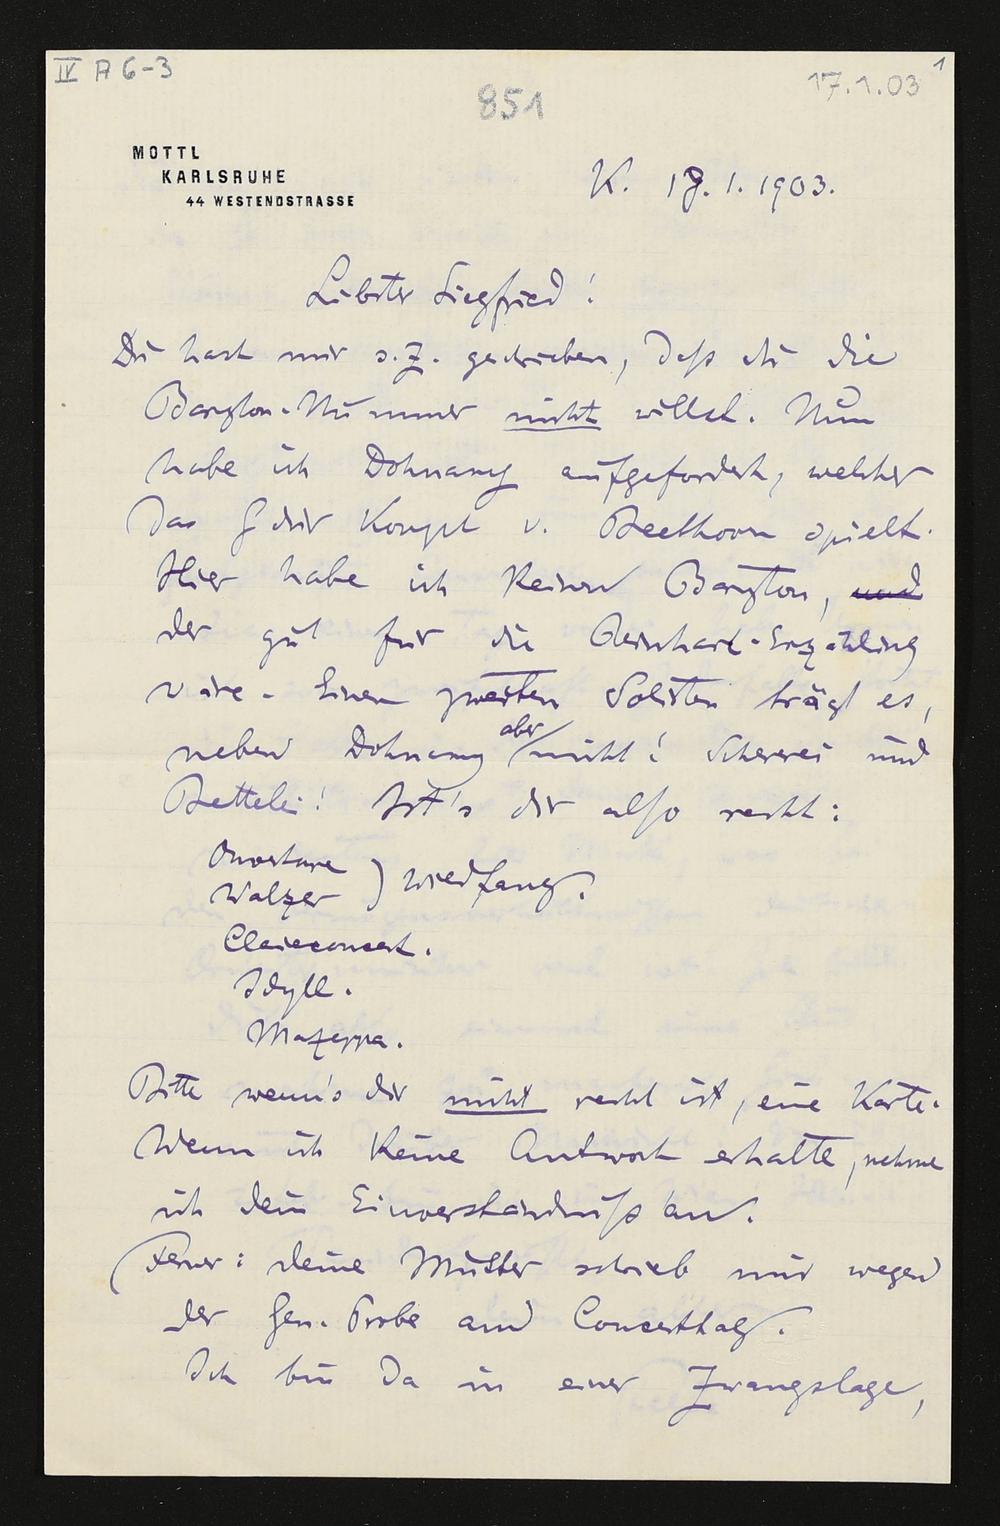 IV A 6-3
17.1.03
1
851
MOTTL
KARLSRUHE
44 WESTENDSTRASSE
K. 17.1.1903.
Liebster Siegfried!
Du hast mir s.Z. geschrieben, daß du die
Baryton-Nummer nicht willst. Nun
habe ich Dohnany aufgefordert, welcher
das G dur Konzert v. Beethoven spielt.
Hier habe ich keinen Baryton, und
der gut für die Reinhart-Erzählung
wäre. Einen zweiten Solisten trägt es,
neben Dohnany aber nicht! Schererei und
Bettelei! Ist's dir also recht:
Ouverture
Walzer } Wildfang.
Clavierconcert.
Idyll.
Mazeppa.
Bitte wenn's dir nicht recht ist, eine Karte.
Wenn ich keine Antwort erhalte, nehme
ich dein Einverständniß an.
Ferner: deine Mutter schrieb mir wegen
der Gen. Probe am Concerttag.
Ich bin da in einer Zwangslage,